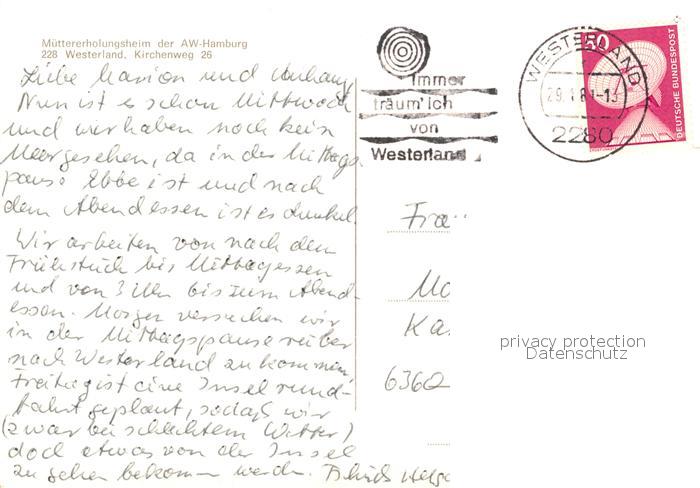 Müttererholungsheim der AW-Hamburg
228 Westerland, Kirchenweg 26
Liebe Marion und Anhang
Nun ist es schon Mittwoch
und wir haben noch kein
Meer gesehen, da in der Mittags-
pause Ebbe ist und nach
dem Abendessen ist es dunkel.
Wir arbeiten von nach dem
Frühstück bis Mittagessen
und von 3 Uhr bis zum Abend-
essen. Morgen versuchen wir
in der Mittagspause rüber
nach Westerland zu kommen
Freitag ist eine Insel rund-
fahrt geplant, sodaß wir
(zwar bei schlechtem Wetter)
doch etwas von der Insel
zu sehen bekommen werden. Tschüß Helga
immer
träum' ich
von
Westerland
WESTERLAND
2280
50
DEUTSCHE BUNDESPOST
Fra
Mo
Ka
6360
privacy protection
Datenschutz